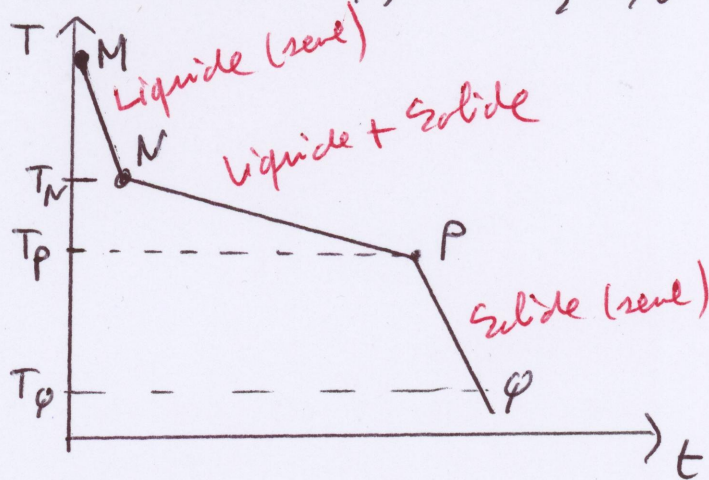 T M
Liquide (seul)
N
Liquide + Solide
T_N
T_P
P
Solide (seul)
T_φ
φ
t